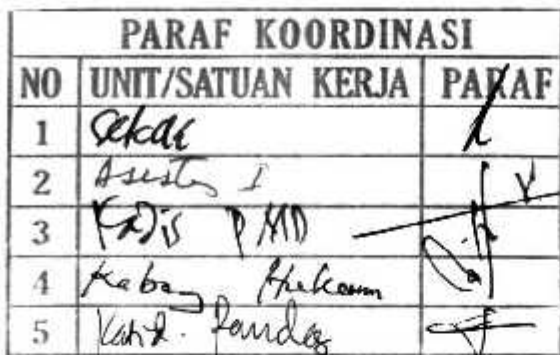 PARAF KOORDINASI
NO UNIT/SATUAN KERJA PARAF
1 Sekda
2 Asisten I
3 Kadis PMD
4 Kabag Hukum
5 Kabid.